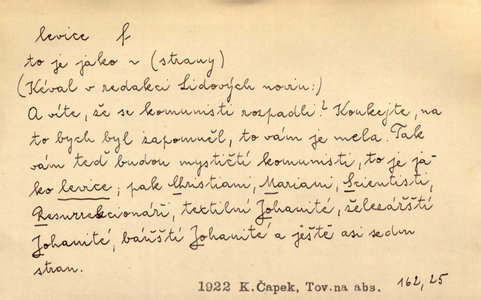 levice f
to je jako ~ (strany)
(Kéval v redakci Lidových novin:)
A víte, že se komunisti rozpadli? Koukejte, na
to bych byl zapomněl, to vám je mela. Tak
vám teď budou mystičtí komunisti, to je já-
ko levice, pak Christiani, Mariani, Scientisti,
Resurrekcionáři, textilní Johanité, železářští
Johanité, báňští Johanité a ještě asi sedm
stran.
1922 K.Čapek, Tov.na abs. 162,25